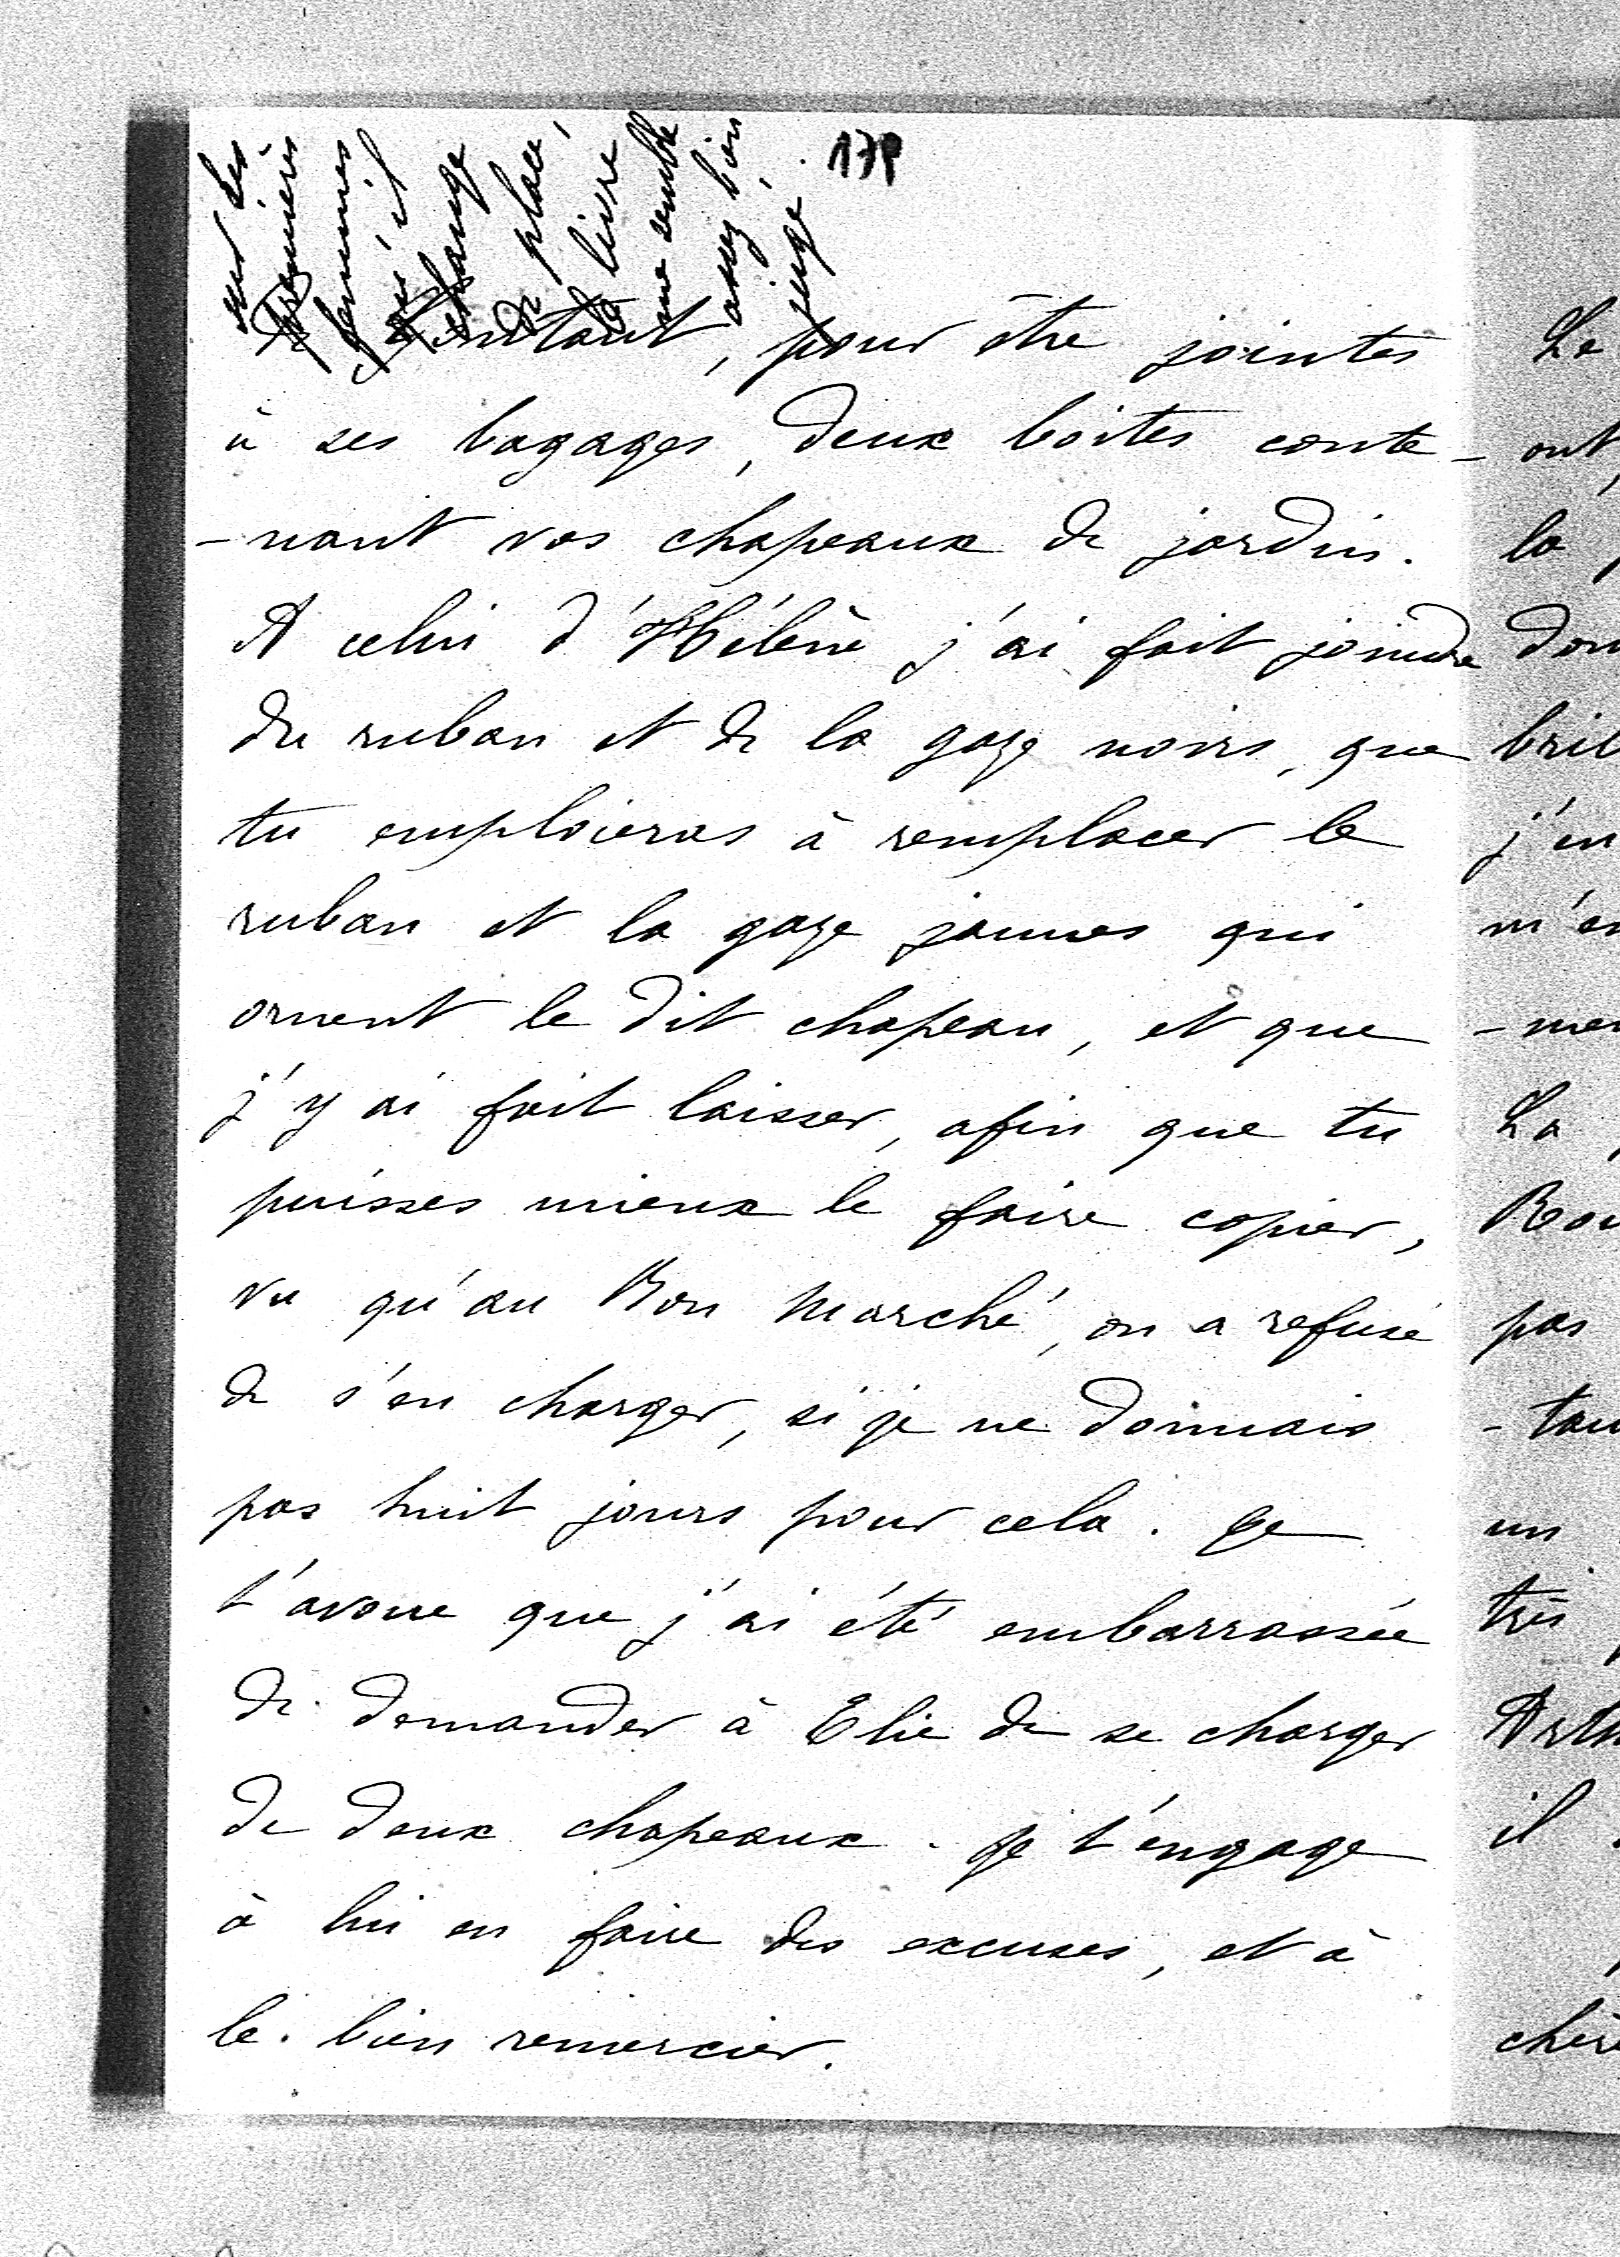 179
sur les
premières
femmes
qu'il
change
de place,
le livre
me semble
assez bien
jugé.
de Constant, pour être jointes
à ses bagages, deux boites conte-
-nant vos chapeaux de jardin.
A celui d'Hélène j'ai fait joindre
du ruban et de la gaze noirs, que
tu emploieras à remplacer le
ruban et la gaze jaunes qui
ornent le dit chapeau, et que
j'y ai fait laisser, afin que tu
puisses mieux le faire copier,
vu qu'au Bon Marché, on a refusé
de s'en charger, si je ne donnais
pas huit jours pour cela. Je
t'avoue que j'ai été embarrassée
de demander à Elie de se charger
de deux chapeaux. Je t'engage
à lui en faire des excuses, et à
le bien remercier.
Le
ont,
la
j'en
La
pas
un
très
il